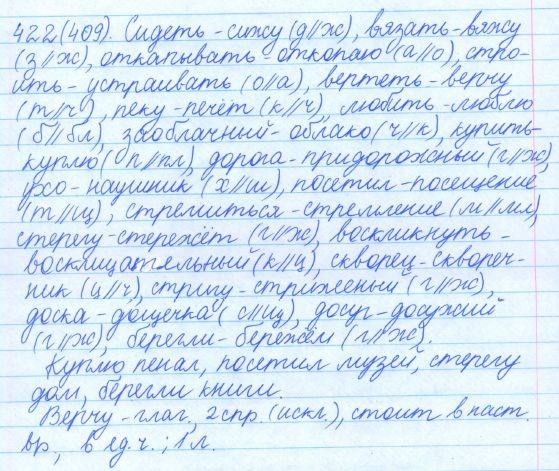 422(409). Сидеть - сижу (д//ж), вязать - вяжу
(з//ж), откапывать - откопаю (а//о), стро-
ить - устраивать (о//а), вертеть - верчу
(т//ч), пеку - печёт (к//ч), любить - люблю
(б//бл), заоблачный - облако (ч//к), купить -
куплю (п//пл), дорога - придорожный (г//ж),
ухо - наушник (х//ш), посетил - посещение
(т//щ), стремиться - стремление (м//мл),
стерегу - стережёт (г//ж), воскликнуть -
восклицательный (к//ц), скворец - сквореч-
ник (ц//ч), стригу - стриженый (г//ж),
доска - дощечка (с//щ), досуг - досужий
(г//ж), берегли - бережём (г//ж).
Куплю пенал, посетил музей, стерегу
дом, берегли книги.
Верчу - глаг., 2 спр. (искл.), стоит в наст.
вр., в ед.ч.; 1 л.